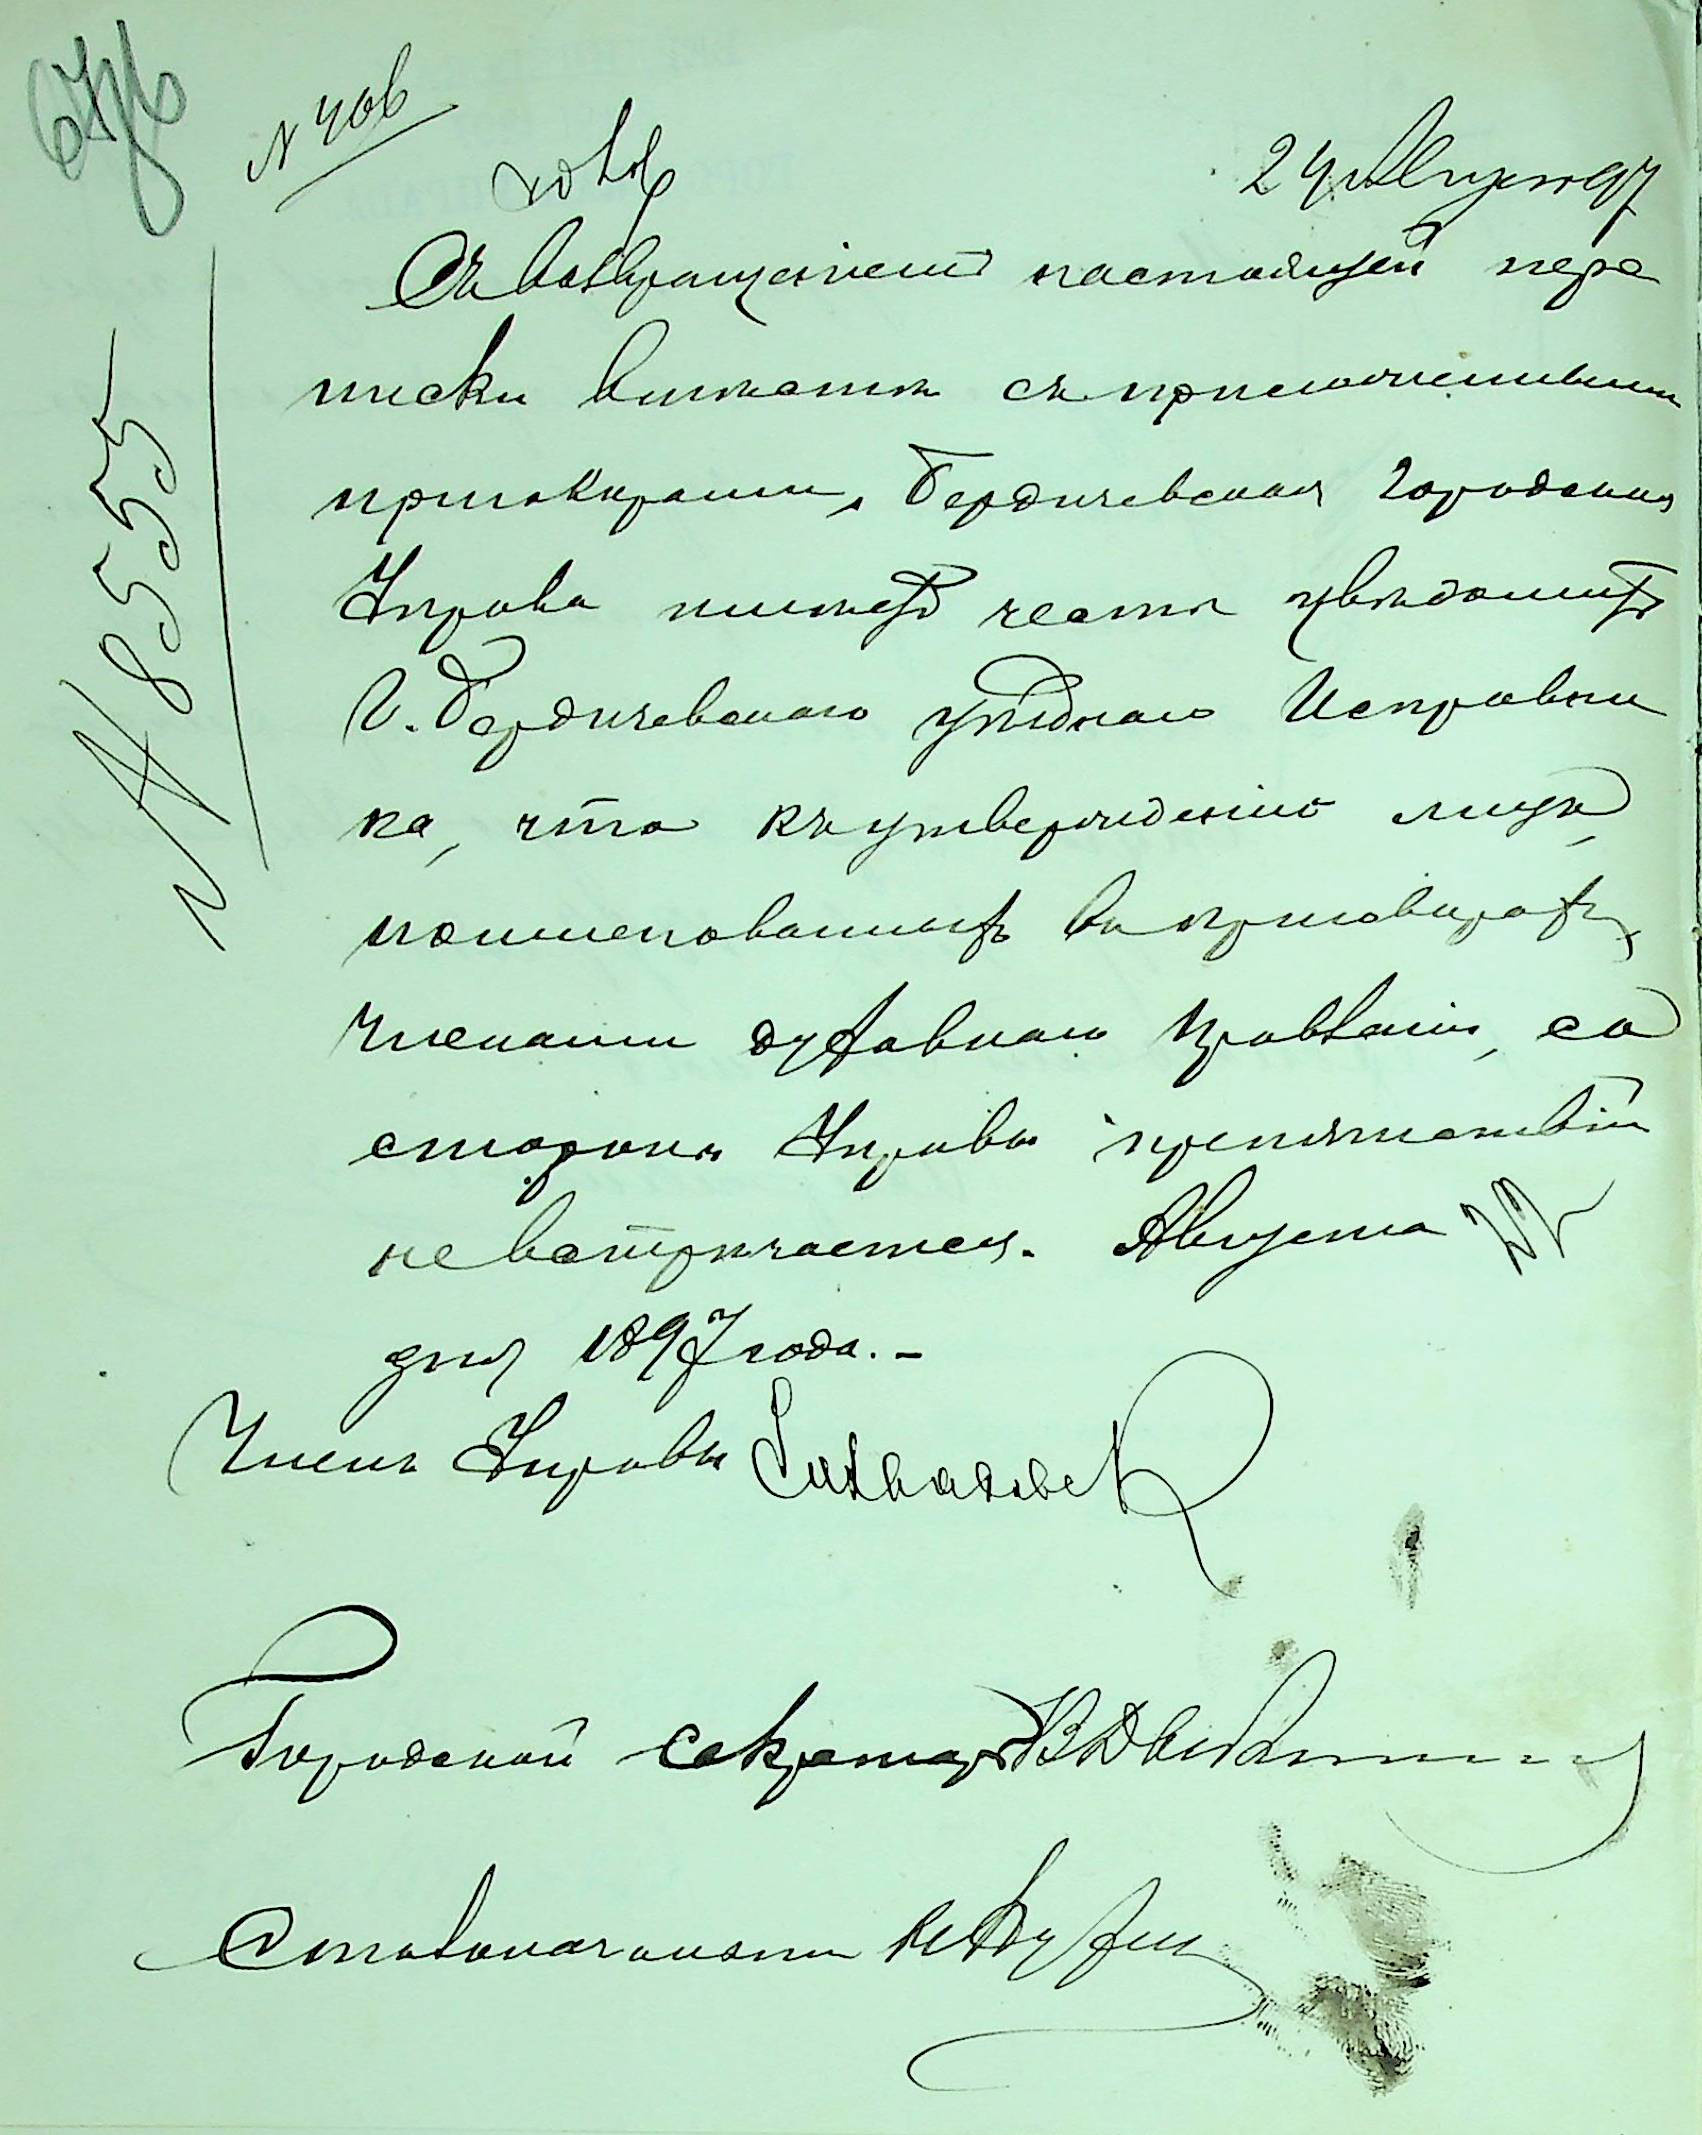 № 406
24 Август 97
Съ возвращеніемъ настоящей пере
писки вмѣстѣ съ приложенными
приговорами, Бердичевская Городская
Управа имѣетъ честь увѣдомить
Г. Бердичевскаго уѣзднаго Исправни
ка, что къ утвержденію лицъ,
поименованныхъ въ приговорахъ,
членами духовнаго правленія, со
стороны Управы препятствій
не встрѣчается. Августа 22
дня 1897 года. –
Членъ Управы
Городской секретарь
Столоначальникъ
№ 8555